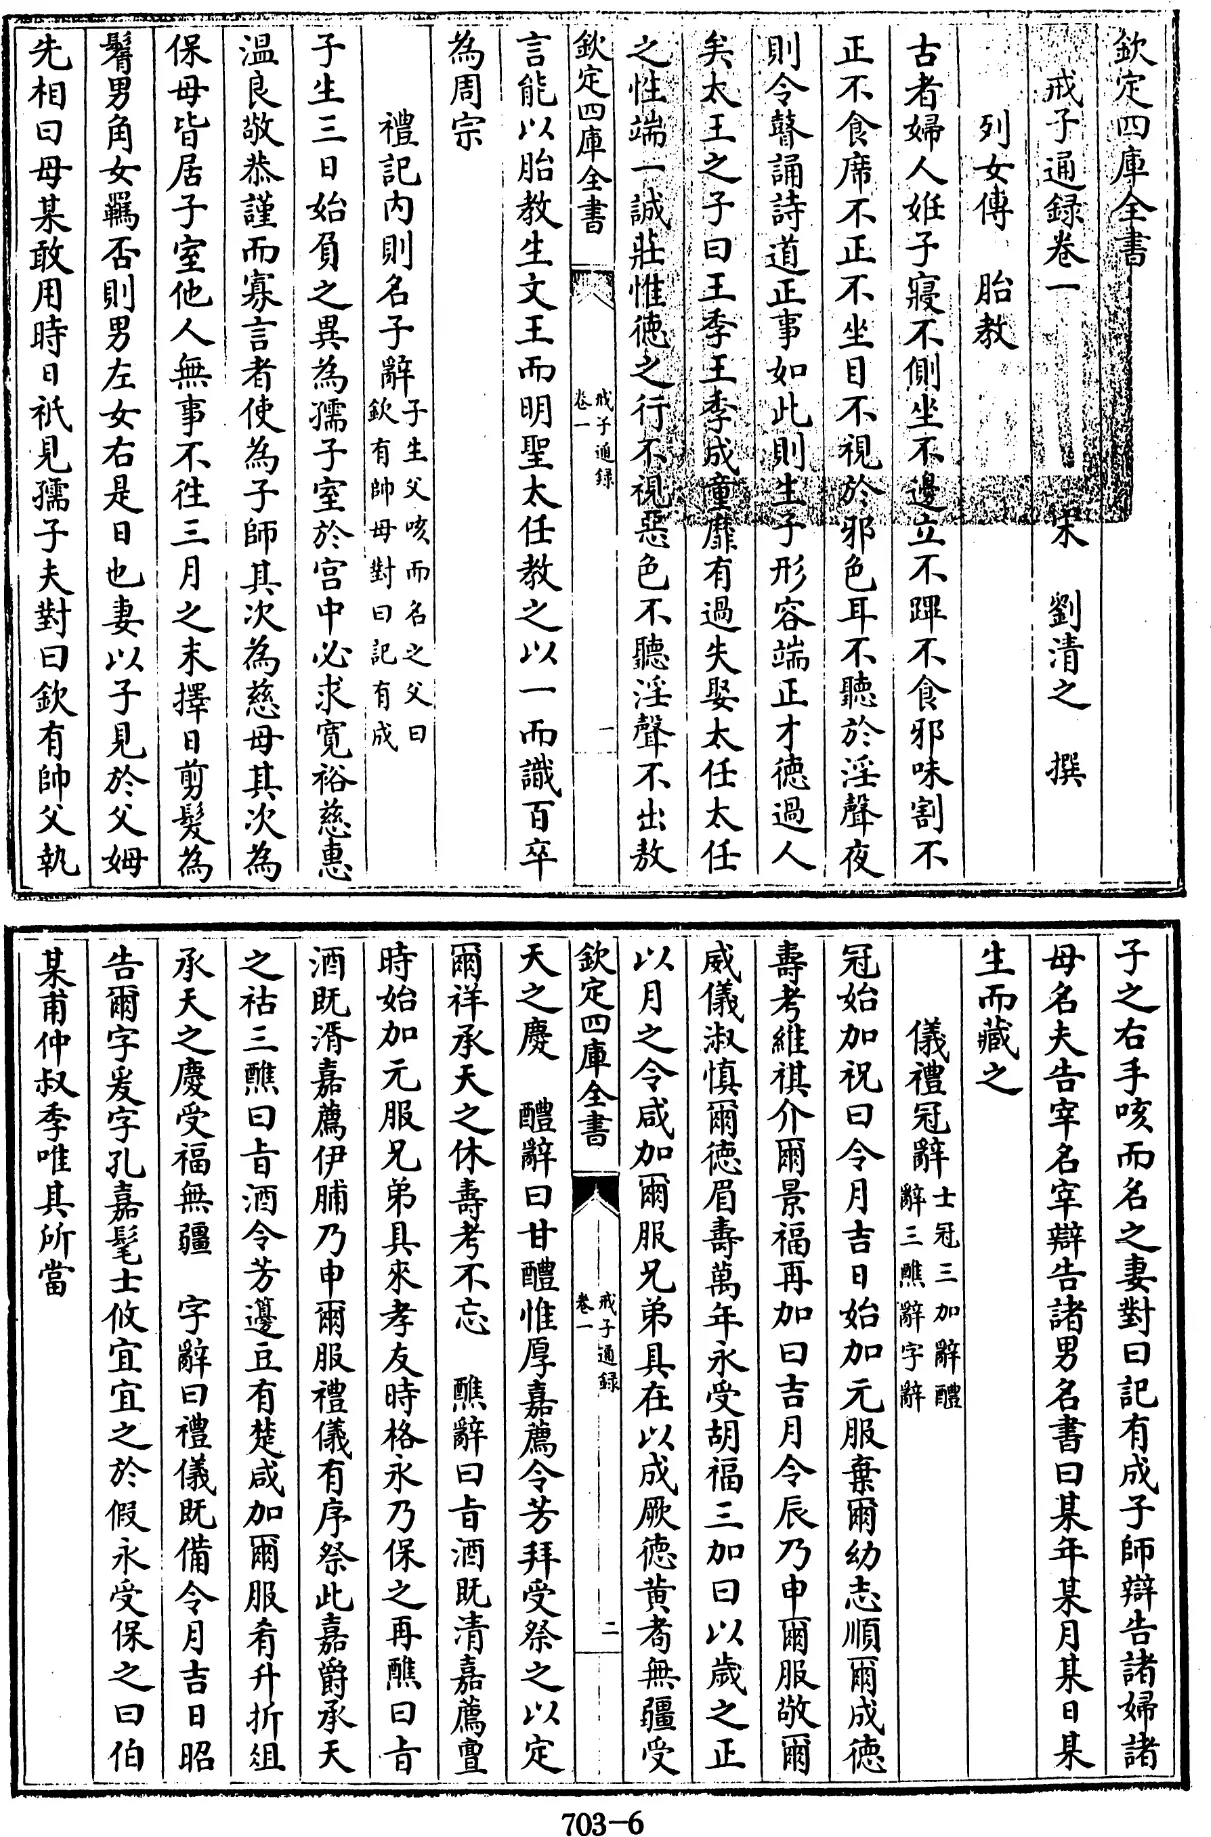 欽定四庫全書
戒子通録卷一
宋　劉清之　撰
列女傳　胎教
古者婦人姙子寢不側坐不邊立不蹕不食邪味割不
正不食席不正不坐目不視於邪色耳不聽於淫聲夜
則令瞽誦詩道正事如此則生子形容端正才徳過人
矣太王之子曰王季王季成童靡有過失娶太任太任
之性端一誠莊惟徳之行不視惡色不聽淫聲不出敖
欽定四庫全書
戒子通録
卷一
一
言能以胎教生文王而明聖太任教之以一而識百卒
為周宗
禮記内則名子辭子生父咳而名之父曰
欽有帥母對曰記有成
子生三日始負之異為孺子室於宫中必求寛裕慈惠
温良敬恭謹而寡言者使為子師其次為慈母其次為
保母皆居子室他人無事不徃三月之末擇日剪髮為
鬌男角女羈否則男左女右是日也妻以子見於父姆
先相曰母某敢用時日祇見孺子夫對曰欽有帥父執
子之右手咳而名之妻對曰記有成子師辯告諸婦諸
母名夫告宰名宰辯告諸男名書曰某年某月某日某
生而藏之
儀禮冠辭士冠三加辭醴
辭三醮辭字辭
冠始加祝曰令月吉日始加元服棄爾幼志順爾成徳
壽考維祺介爾景福再加曰吉月令辰乃申爾服敬爾
威儀淑慎爾徳眉壽萬年永受胡福三加曰以歳之正
以月之令咸加爾服兄弟具在以成厥徳黄耇無疆受
欽定四庫全書
戒子通録
卷一
二
天之慶　醴辭曰甘醴惟厚嘉薦令芳拜受祭之以定
爾祥承天之休壽考不忘　醮辭曰旨酒既清嘉薦亶
時始加元服兄弟具來孝友時格永乃保之再醮曰旨
酒既湑嘉薦伊脯乃申爾服禮儀有序祭此嘉爵承天
之祜三醮曰旨酒令芳籩豆有楚咸加爾服肴升折俎
承天之慶受福無疆　字辭曰禮儀既備令月吉日昭
告爾字爰字孔嘉髦士攸宜宜之於假永受保之曰伯
某甫仲叔季唯其所當
703-6